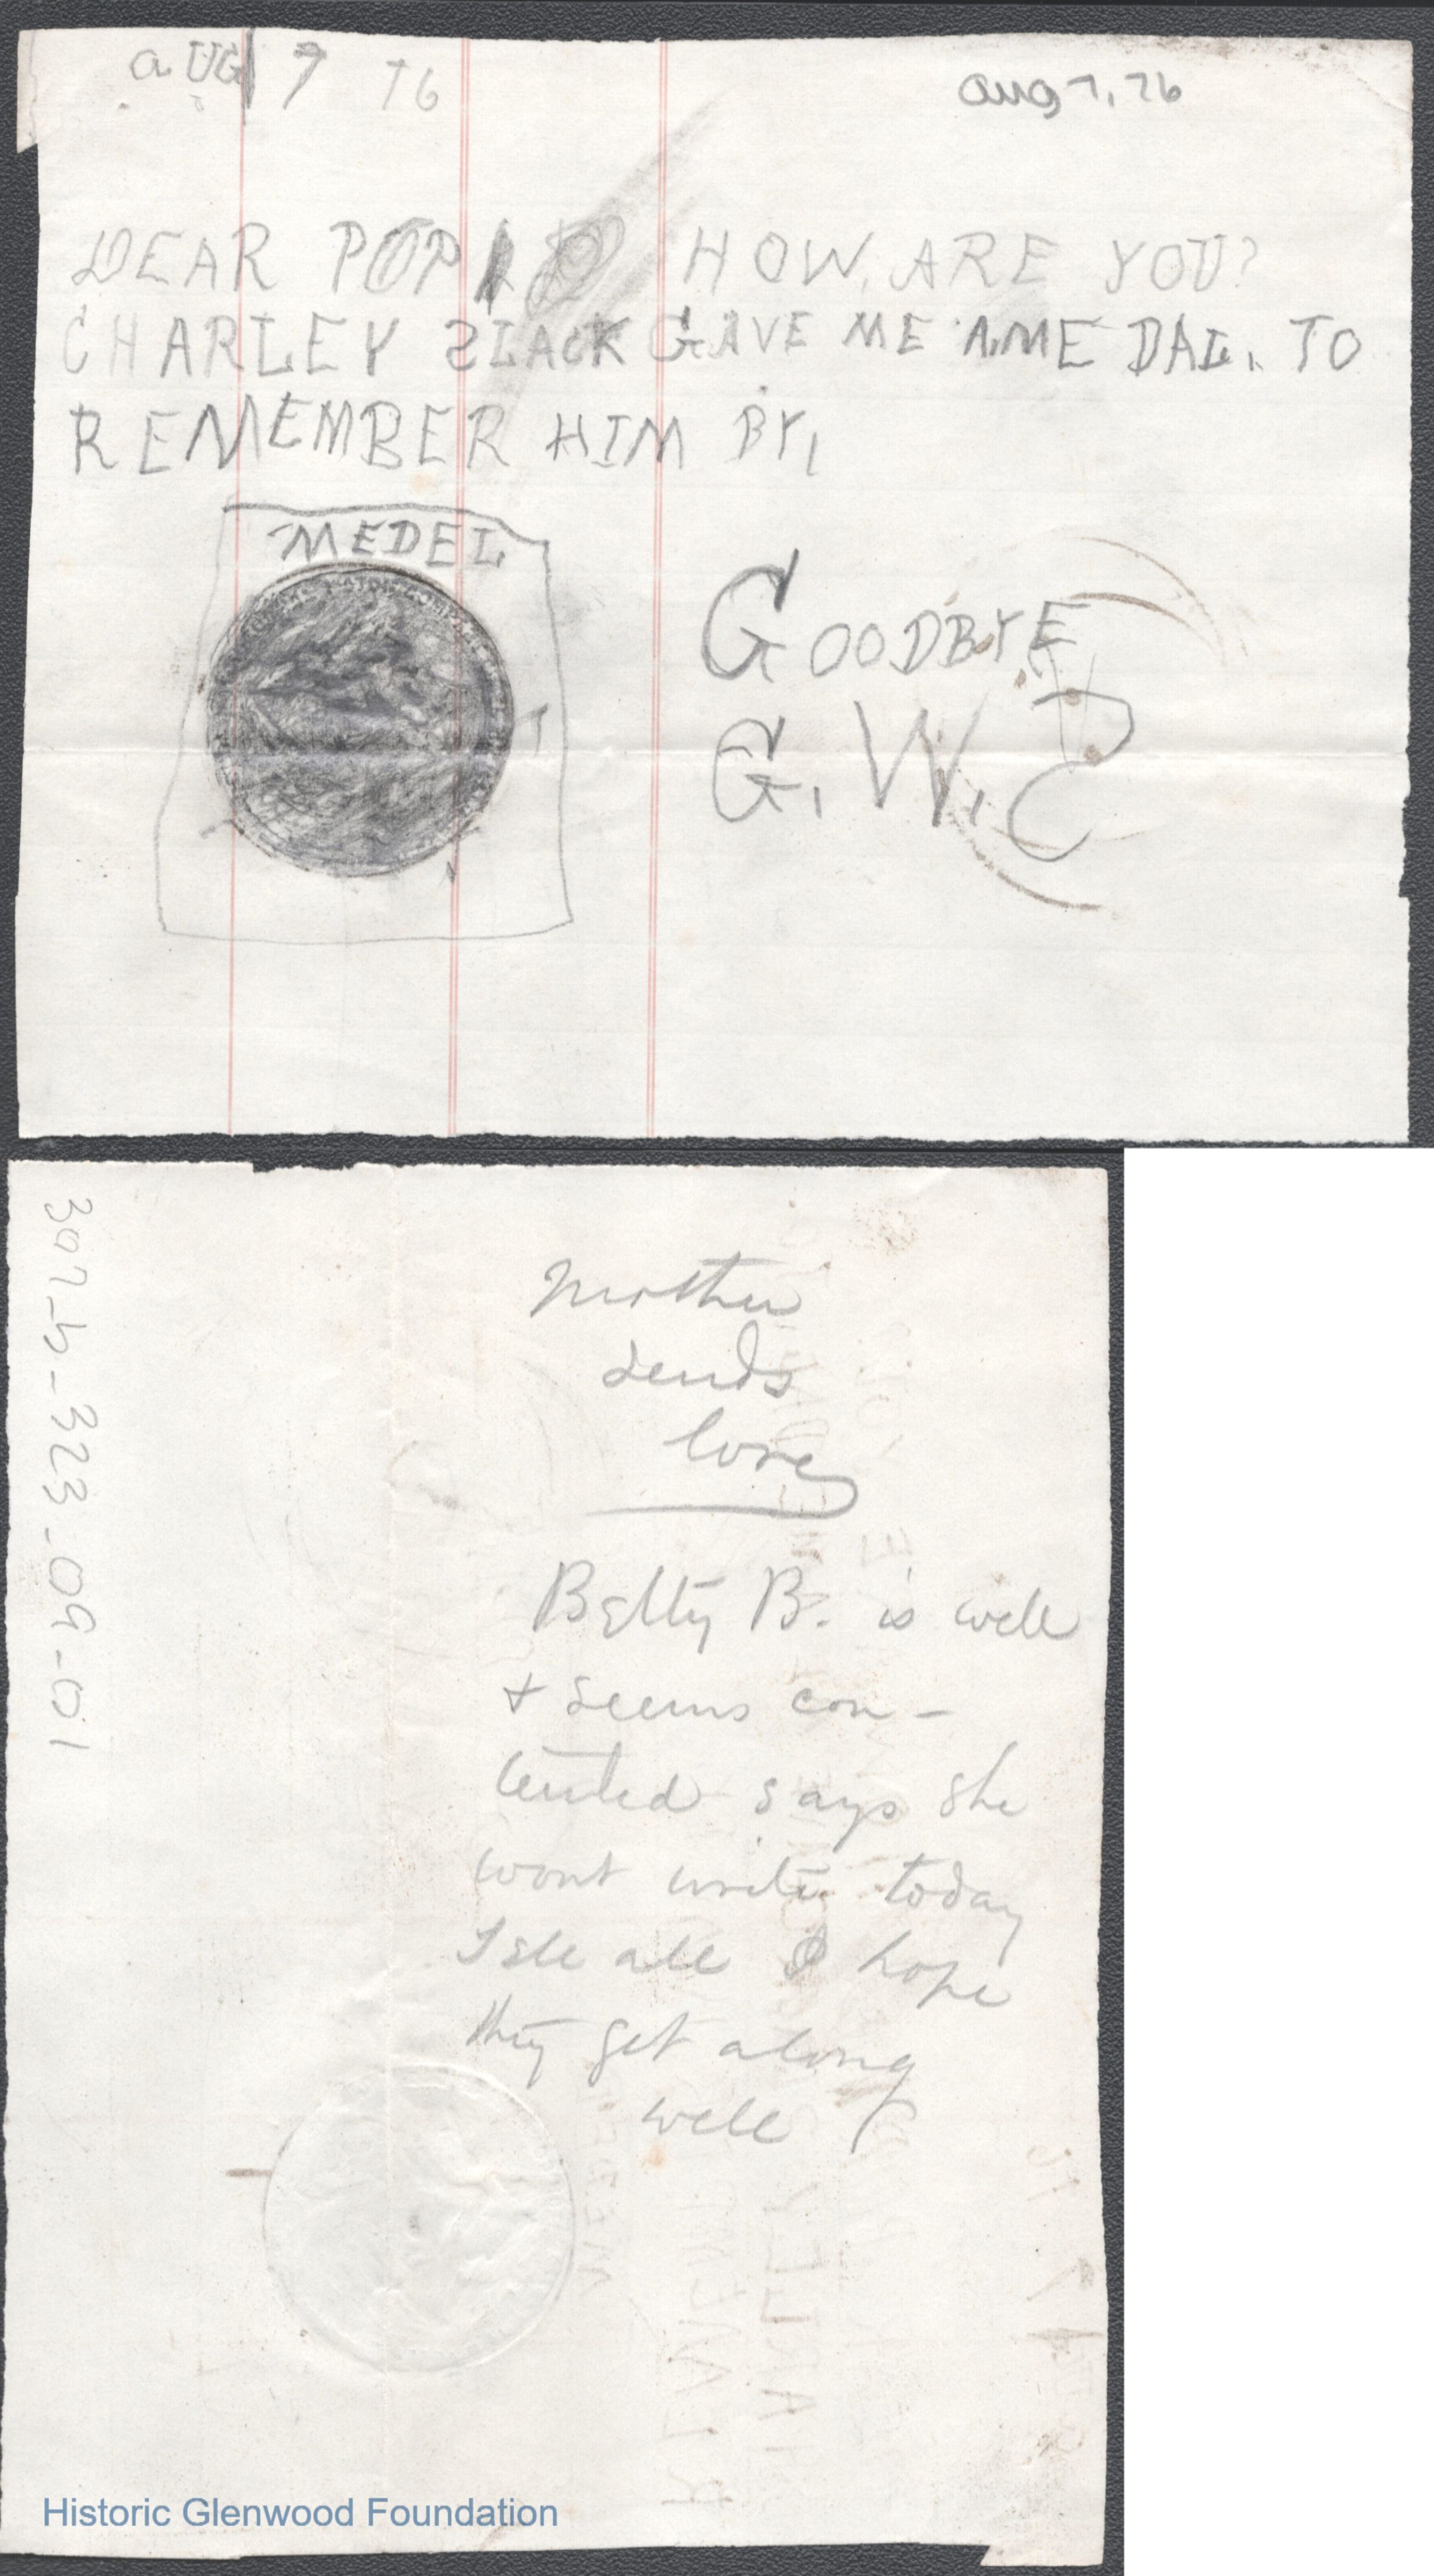 aUG 7 76
aug 7, 76
DEAR POP HOW, ARE YOU?
CHARLEY SLACK GAVE ME A.MEDAL. TO
REMEMBER HIM BY,
MEDEL
GOODBYE
G. W. S
307-4-323-09-01
Mother
sends
love
Betty B. is well
+ seems con-
tented says she
wont write today
I hope
they get along
well
Historic Glenwood Foundation